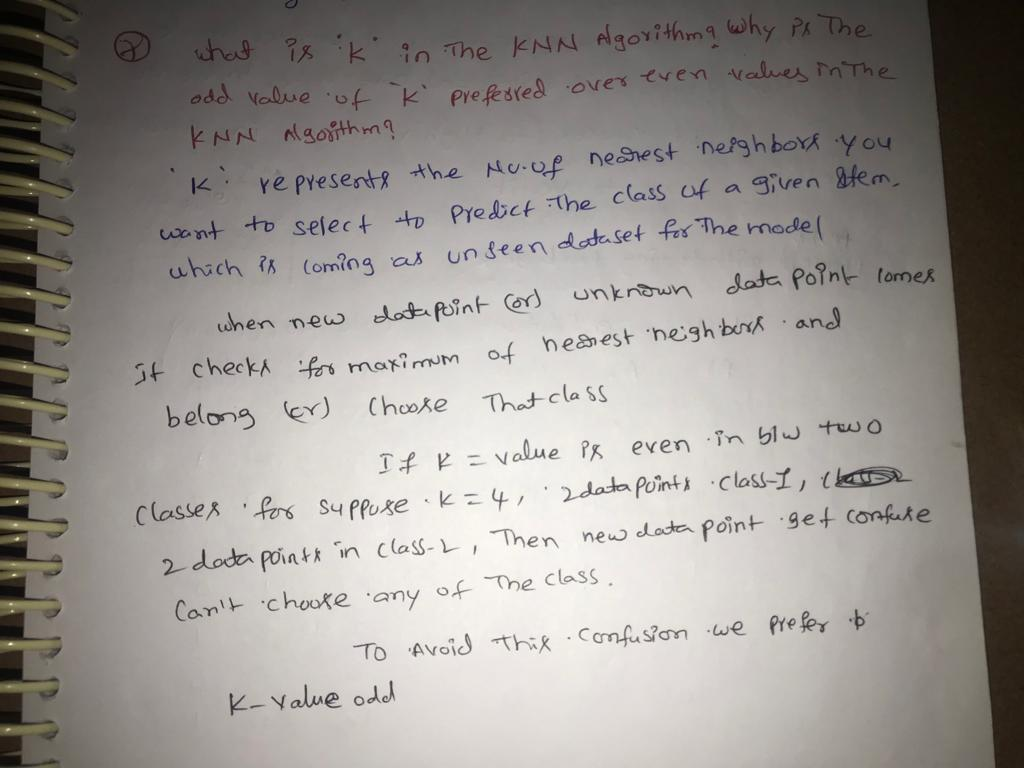 ② what is 'K' in The KNN Algorithm? Why is The
odd value of 'K' preferred over even values in The
KNN Algorithm?
'K' represents the No. of nearest neighbors you
want to select to predict The class of a given item.
which is coming as unseen dataset for The model
when new datapoint (or) unknown data point comes
it checks for maximum of nearest neighbors and
belong (or) choose That class
If K = value is even in b/w two
classes for suppose K = 4, 2 datapoints class-I,
2 data points in class-2, Then new data point get confuse
Can't choose any of The class.
To Avoid this confusion we prefer
K-value odd